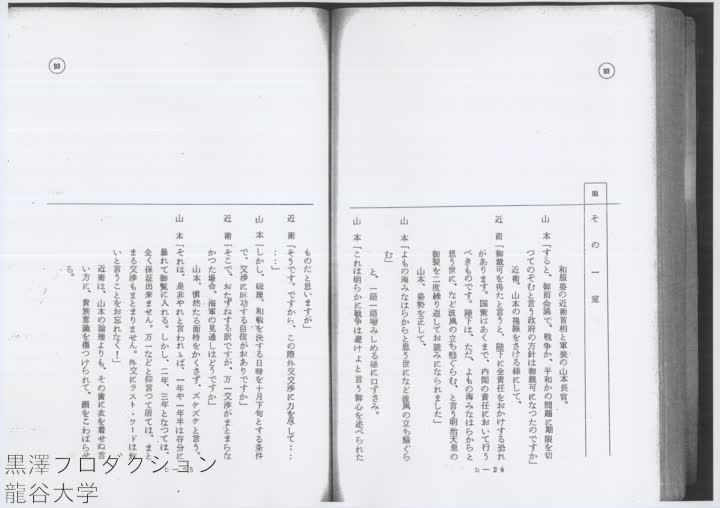 93
93 その一室
和服姿の近衛首相と軍装の山本長官。
山本「すると、御前会議で、戦争か、平和かの問題に期限を切
つてのぞむと言う政府の方針は御裁可になつたのですか」
近衛、山本の視線をさける様にして、
近衛「御裁可を得たと言うと、陛下に全責任をおかけする恐れ
があります。国策はあくまで、内閣の責任において行う
べきものです。陛下は、ただ、よもの海みなはらからと
思う世に、など波風の立ち騒ぐらむ、と言う明治天皇の
御製を二度繰り返してお読みになられました」
山本、姿勢を正して、
山本「よもの海みなはらからと思う世になど波風の立ち騒ぐら
む」
と、一語一語噛みしめる様に口ずさみ。
山本「これは明らかに戦争は避けよと言う御心を述べられた
b—24
93
ものだと思いますが」
近衛「そうです。ですから、この際外交交渉に力を尽して…
…」
山本「しかし、総理、和戦を決する日時を十月下旬とする条件
で、交渉に成功する自信がおありですか」
近衛「そこで、おたずねする訳ですが、万一交渉がまとまらな
かつた場合、海軍の見通しはどうですか」
山本、憤然たる面持をかくさず、ズケズケと言う。
山本「それは、是非やれと言われゝば、一年や一年半は存分に
暴れて御覧に入れる。しかし、二年、三年となつては、
全く保証出来ません。万一などと仰言つて居ては、まと
まる交渉もまとまりません。外交にラスト・ワードは無
いと言うことをお忘れなく！」
近衛は、山本の論理よりも、その歯に衣を着せぬ言
い方に、貴族意識を傷つけられて、顔をこわばらせ
る。
黒澤プロダクション
龍谷大学